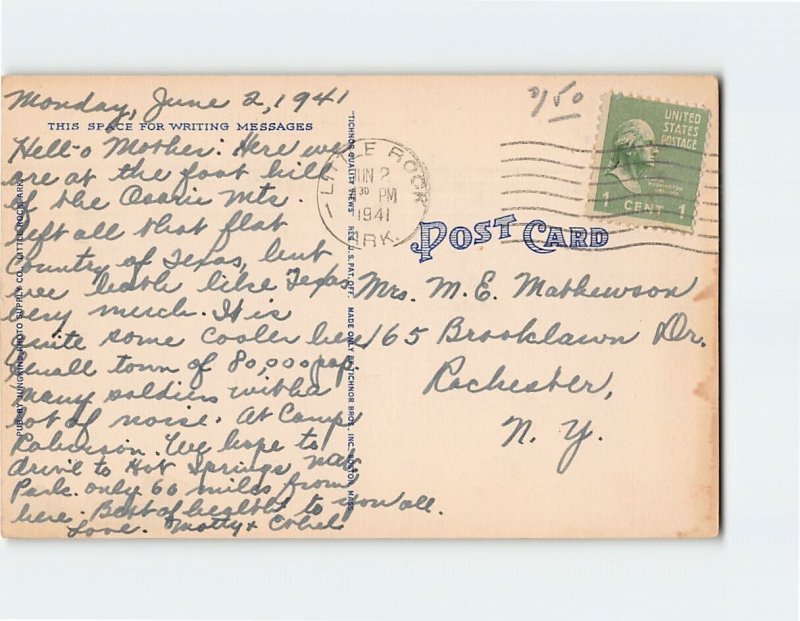 Monday, June 2, 1941
THIS SPACE FOR WRITING MESSAGES
Hell-o Mother: Here we
are at the foot hill
of the Ozaric Mts.
left all that flat
Country of Texas, but
wee both like Texas
very much. It is
quite some cooler here
Small town of 80,000 pop.
many soldiers with a
lot of noise. At Camp
Robinson. We hope to
drive to Hot Springs Nat.
Park. only 60 miles from
here. Best of health to you all.
Love. Matty +
PUB. BY JUNGKIND PHOTO SUPPLY CO., LITTLE ROCK, ARK.
"TICHNOR QUALITY VIEWS" REG. U. S. PAT. OFF. MADE ONLY BY TICHNOR BROS. INC. BOSTON, MASS.
LITTLE ROCK
JUN 2
30 PM
1941
ARK.
POST CARD
UNITED
STATES
POSTAGE
WASHINGTON
1 CENT 1
Mrs. M. E. Mathewson
165 Brooklawn Dr.
Rochester,
N. Y.